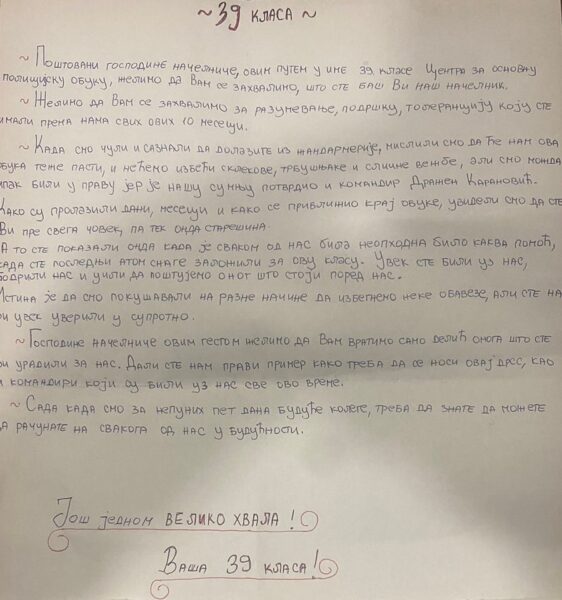 ~ 39 КЛАСА ~
~ Поштовани господине начелниче, овим путем у име 39. класе Центра за основну
полицијску обуку, желимо да Вам се захвалимо, што сте баш Ви наш начелник.
~ Желимо да Вам се захвалимо за разумевање, подршку, толеранцију коју сте
имали према нама свих ових 10 месеци.
~ Када смо чули и сазнали да долазите из жандармерије, мислили смо да ће нам ова
обука теже пасти, и нећемо избећи склекове, трбушњаке и сличне вежбе, али смо можда
ипак били у праву јер је нашу сумњу потврдио и командир Дражен Карановић.
Како су пролазили дани, месеци и како се приближио крај обуке, увидели смо да сте
Ви пре свега човек, па тек онда старешина.
А то сте показали онда када је сваком од нас била неопходна било каква помоћ,
када сте последњи атом снаге заложили за ову класу. Увек сте били уз нас,
бодрили нас и учили да поштујемо оног што стоји поред нас.
Истина је да смо покушавали на разне начине да избегнемо неке обавезе, али сте нас
Ви увек уверили у супротно.
~ Господине начелниче овим гестом желимо да Вам вратимо само делић онога што сте
Ви урадили за нас. Дали сте нам прави пример како треба да се носи овај дрес, као
и командири који су били уз нас све ово време.
~ Сада када смо за непуних пет дана будуће колеге, треба да знате да можете
да рачунате на свакога од нас у будућности.
Још једном ВЕЛИКО ХВАЛА!
Ваша 39 КЛАСА!